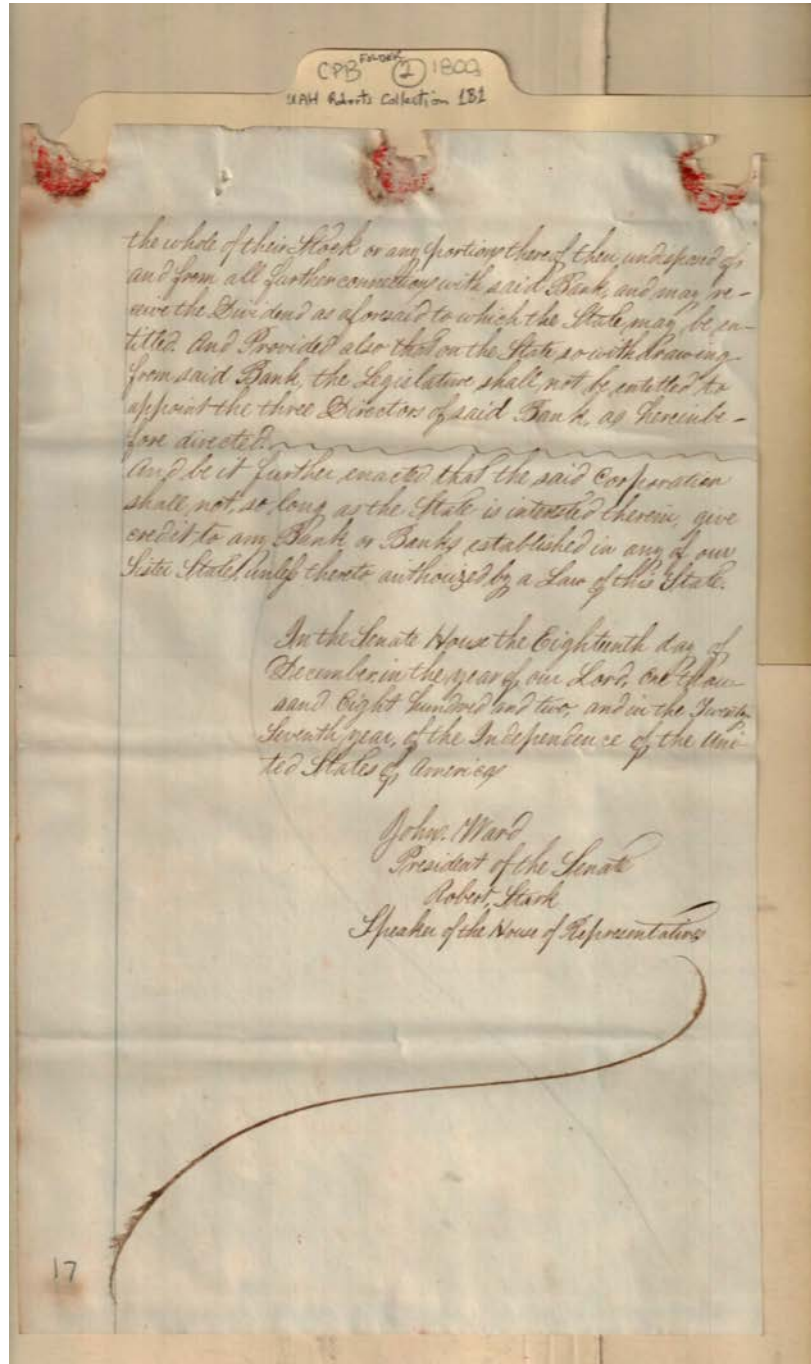 CPB FOLDER 2 1803
UAH Roberts Collection 1B1
the whole of their Stock or any portions thereof then undisposed of,
and from all further connections with said Bank, and may re-
ceive the Dividend as aforesaid to which the State, may be en-
titled. And Provided also that on the State so withdrawing
from said Bank, the Legislature shall not be entitled to
appoint the three Directors of said Bank, as hereinbe-
fore directed.
And be it further enacted that the said Corporation
shall, not, so long as the State is interested therein, give
credit to any Bank or Banks established in any of our
Sister States, Unless thereto authorized by a Law of this State.
In the Senate House the Eighteenth day of
December in the year of our Lord, One thou-
sand Eight hundred and two, and in the Twenty
Seventh year, of the Independence of the Uni-
ted States of America
John. Ward
President of the Senate
Robert, Stark
Speaker of the House of Representatives
17